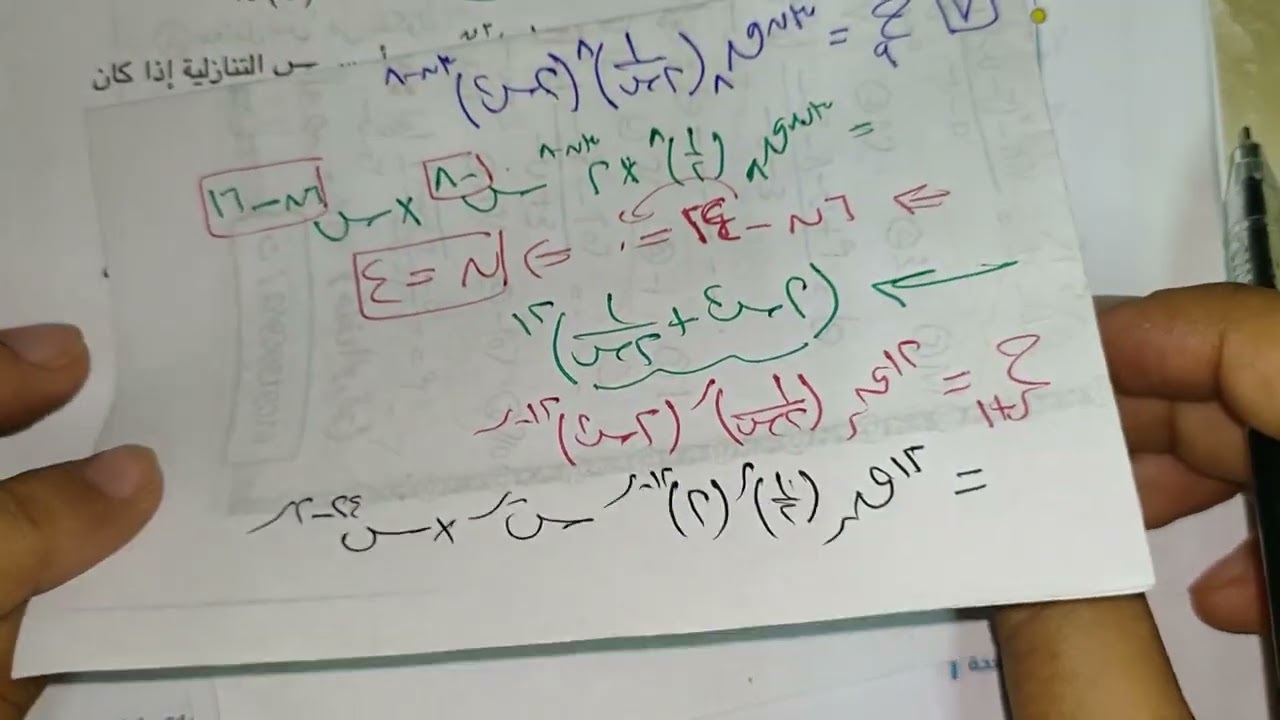 ... س التنازلية إذا كان
[٧] ح٩ = ٣ن ق٨ (١/٢س)^٨ (٢س٢)^(٣ن-٨)
= ٣ن ق٨ (١/٢)^٨ × ٢^(٣ن-٨) س^(-٨) × س^(٦ن-١٦)
⇐ ٦ن - ٢٤ = ٠ ⇐ ن = ٤
← (٢س٢ + ١/٢س)^١٢
ح ر+١ = ١٢ق ر (١/٢س)^ر (٢س٢)^(١٢-ر)
= ١٢ق ر (١/٢)^ر (٢)^(١٢-ر) س^(-ر) × س^(٢٤-٢ر)